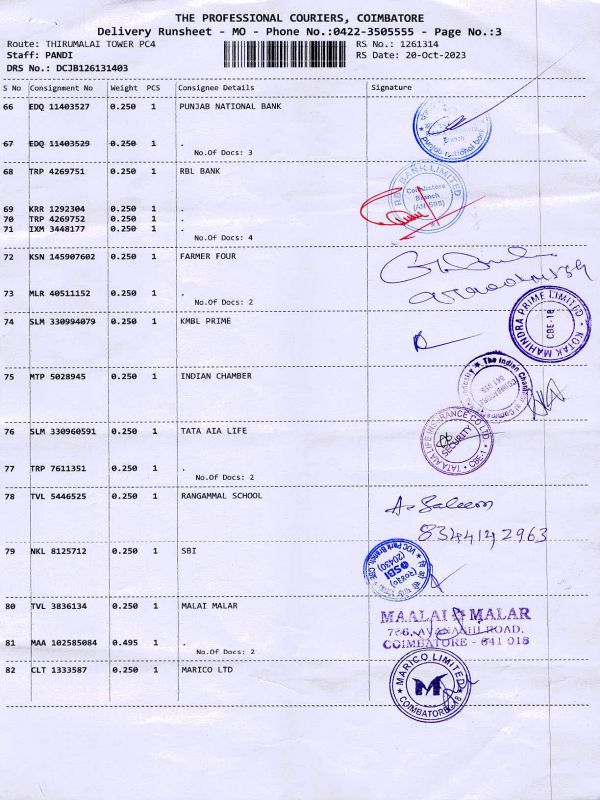 THE PROFESSIONAL COURIERS, COIMBATORE
Delivery Runsheet - MO - Phone No.:0422-3505555 - Page No.:3
Route: THIRUMALAI TOWER PC4
RS No.: 1261314
Staff: PANDI
RS Date: 20-Oct-2023
DRS No.: DCJB126131403
S No Consignment No Weight PCS Consignee Details Signature
66 EDQ 11403527 0.250 1 PUNJAB NATIONAL BANK
67 EDQ 11403529 0.250 1 .
No.Of Docs: 3
punjab national bank
Branch
68 TRP 4269751 0.250 1 RBL BANK
69 KRR 1292304 0.250 1 .
70 TRP 4269752 0.250 1 .
71 IXM 3448177 0.250 1 .
No.Of Docs: 4
RBL BANK LIMITED
Coimbatore
Branch
72 KSN 145907602 0.250 1 FARMER FOUR
73 MLR 40511152 0.250 1 .
No.Of Docs: 2
74 SLM 330994079 0.250 1 KMBL PRIME
KOTAK MAHINDRA PRIME LIMITED
CBE-18
75 MTP 5028945 0.250 1 INDIAN CHAMBER
The Indian Chamber of Commerce
COIMBATORE
641 018
76 SLM 330960591 0.250 1 TATA AIA LIFE
77 TRP 7611351 0.250 1 .
No.Of Docs: 2
TATA AIA LIFE INSURANCE CO LTD
SECURITY
CBE-1
78 TVL 5446525 0.250 1 RANGAMMAL SCHOOL
A. Saleem
8344142963
79 NKL 8125712 0.250 1 SBI
SBI
(20430)
VOC Park Branch, CBE
80 TVL 3836134 0.250 1 MALAI MALAR
81 MAA 102585084 0.495 1 .
No.Of Docs: 2
MAALAI MALAR
766, AVANASHI ROAD,
COIMBATORE - 641 018
82 CLT 1333587 0.250 1 MARICO LTD
MARICO LIMITED
M
COIMBATORE-18